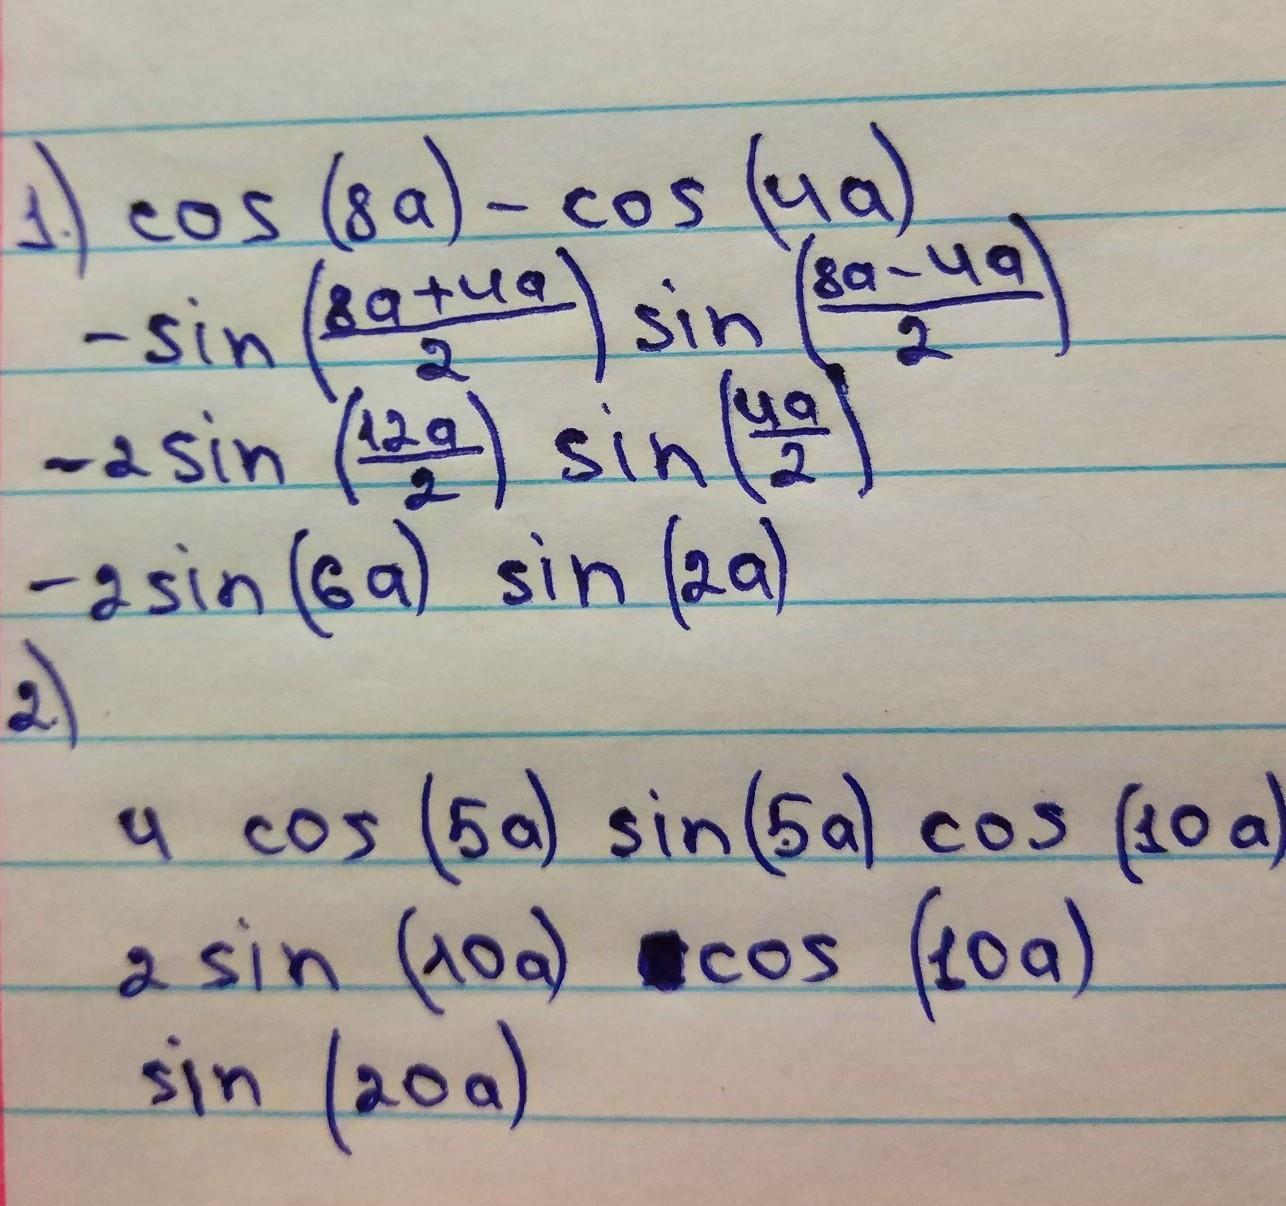 1.) cos (8a) - cos (4a)
-sin ((8a+4a)/2) sin ((8a-4a)/2)
-2sin (12a/2) sin (4a/2)
-2sin (6a) sin (2a)
2.)
4 cos (5a) sin (5a) cos (10a)
2 sin (10a) cos (10a)
sin (20a)